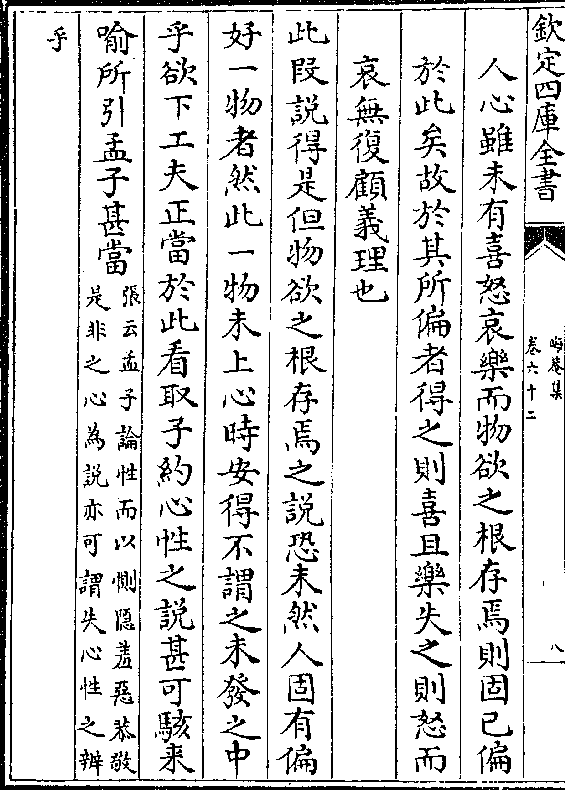 欽定四庫全書
晦菴集
卷六十二
八
人心雖未有喜怒哀樂而物欲之根存焉則固已偏
於此矣故於其所偏者得之則喜且樂失之則怒而
哀無復顧義理也
此段説得是但物欲之根存焉之説恐未然人固有偏
好一物者然此一物未上心時安得不謂之未發之中
乎欲下工夫正當於此看取子約心性之説甚可駭来
喻所引孟子甚當
張云孟子論性而以惻隱羞惡恭敬
是非之心為説亦可謂失心性之辨
乎